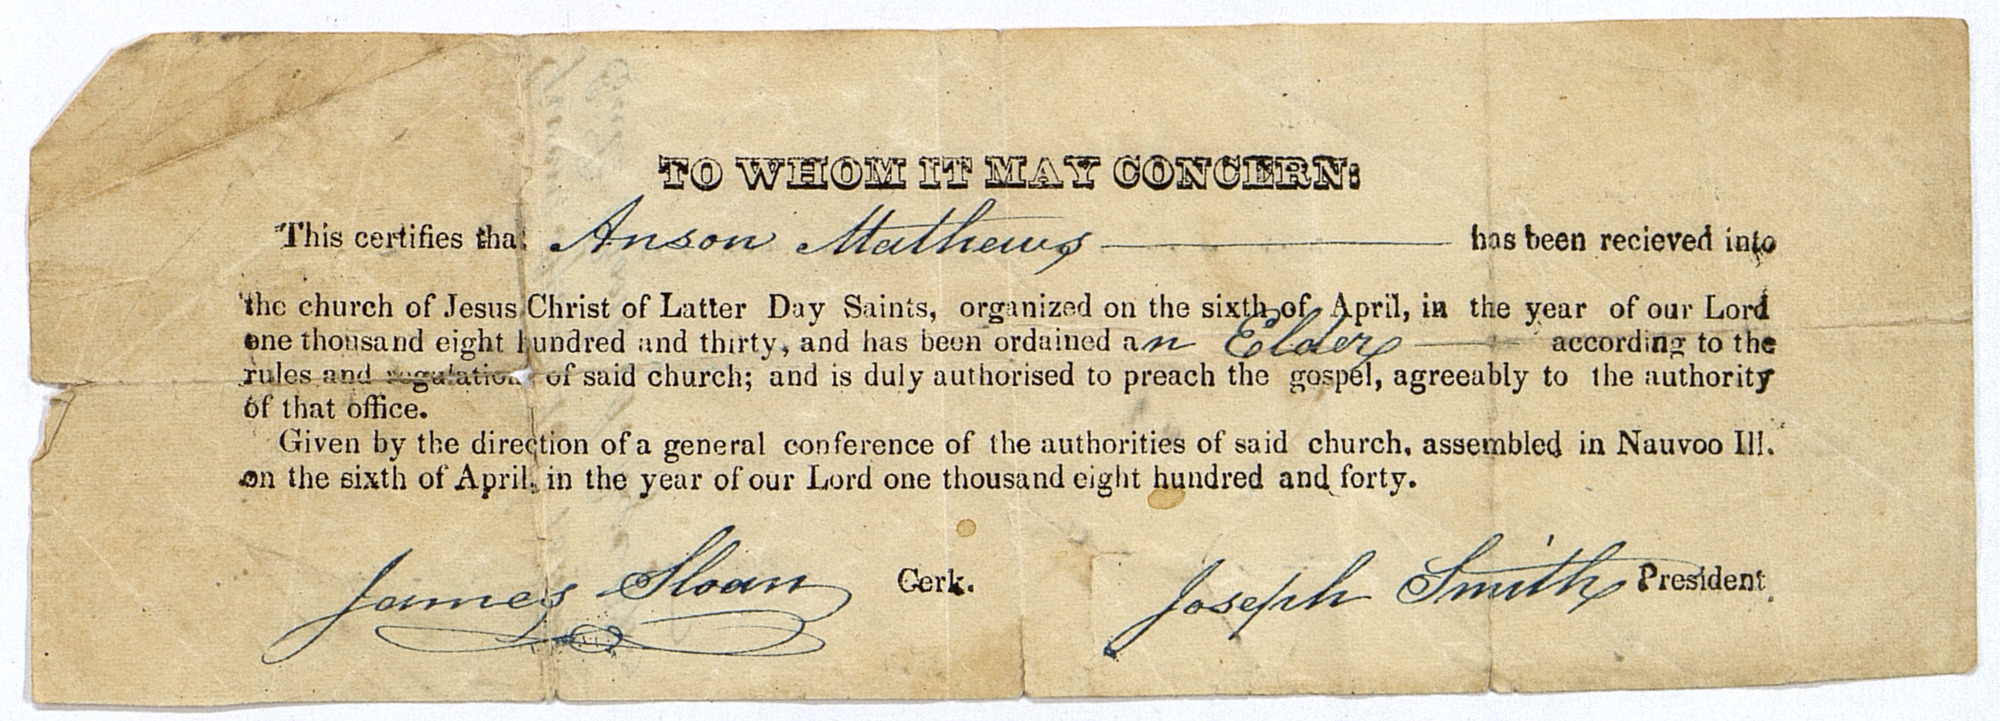 TO WHOM IT MAY CONCERN:
This certifies that Anson Mathews has been recieved into
the church of Jesus Christ of Latter Day Saints, organized on the sixth of April, in the year of our Lord
one thousand eight hundred and thirty, and has been ordained an Elder according to the
rules and regulation of said church; and is duly authorised to preach the gospel, agreeably to the authority
of that office.
Given by the direction of a general conference of the authorities of said church, assembled in Nauvoo Ill.
on the sixth of April, in the year of our Lord one thousand eight hundred and forty.
James Sloan Cerk. Joseph Smith President.